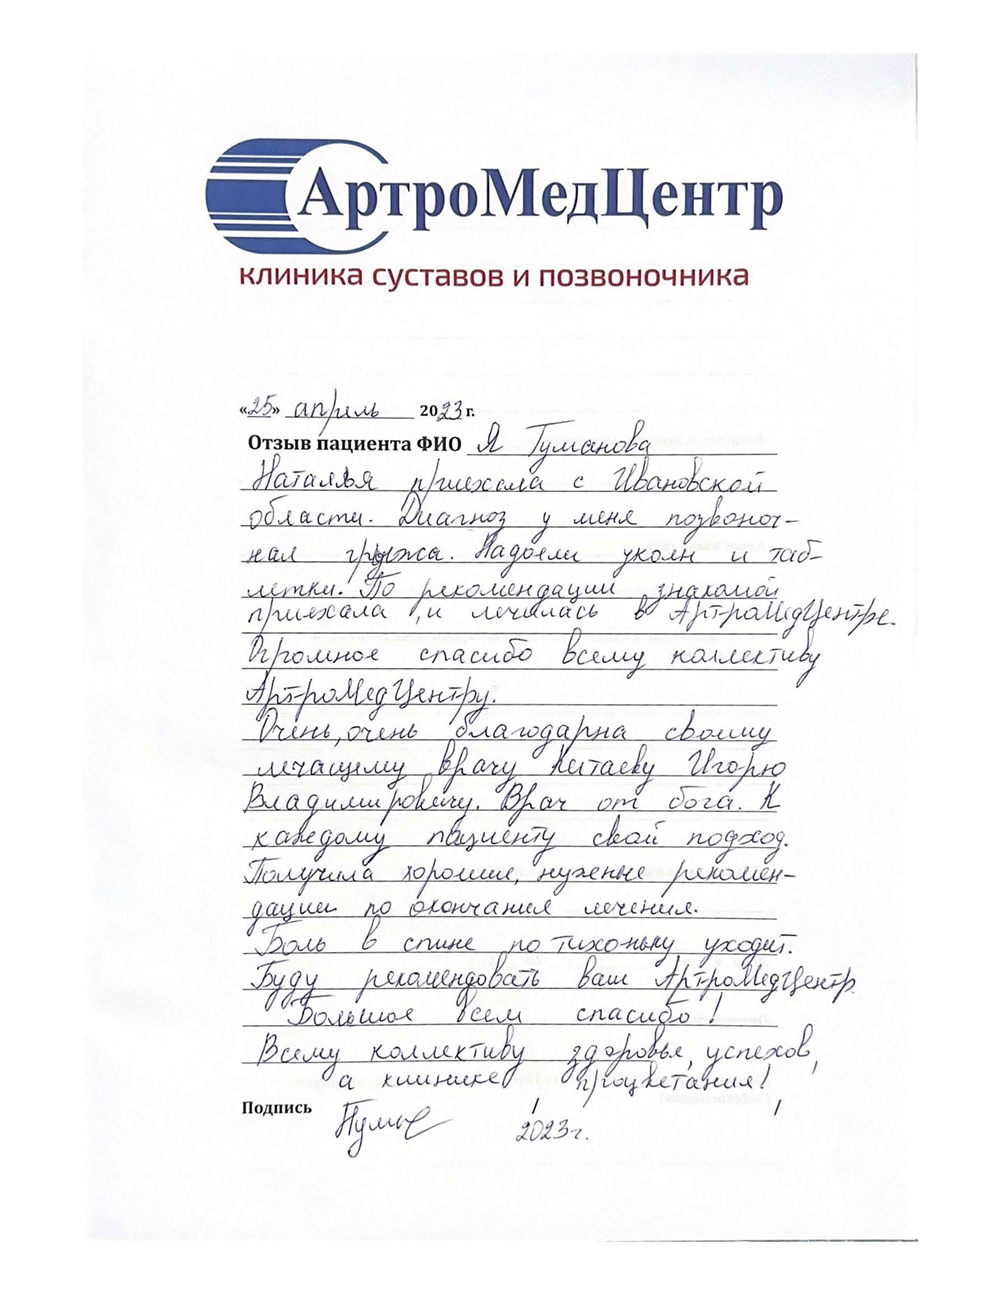 АртроМедЦентр
клиника суставов и позвоночника
«25» апрель 2023 г.
Отзыв пациента ФИО Я Туманова
Наталья приехала с Ивановской
области. Диагноз у меня позвоноч-
ная грыжа. Надоели уколы и таб-
летки. По рекомендации знакомой
приехала и лечилась в АртроМедЦентре.
Огромное спасибо всему коллективу
АртроМедЦентру.
Очень, очень благодарна своему
лечащему врачу Китаеву Игорю
Владимировичу. Врач от бога. К
каждому пациенту свой подход.
Получила хорошие, нужные рекомен-
дации по окончания лечения.
Боль в спине по тихоньку уходит.
Буду рекомендовать ваш АртроМедЦентр
Большое всем спасибо!
Всему коллективу здоровье, успехов,
а клинике процветания!
Подпись / /
2023 г.